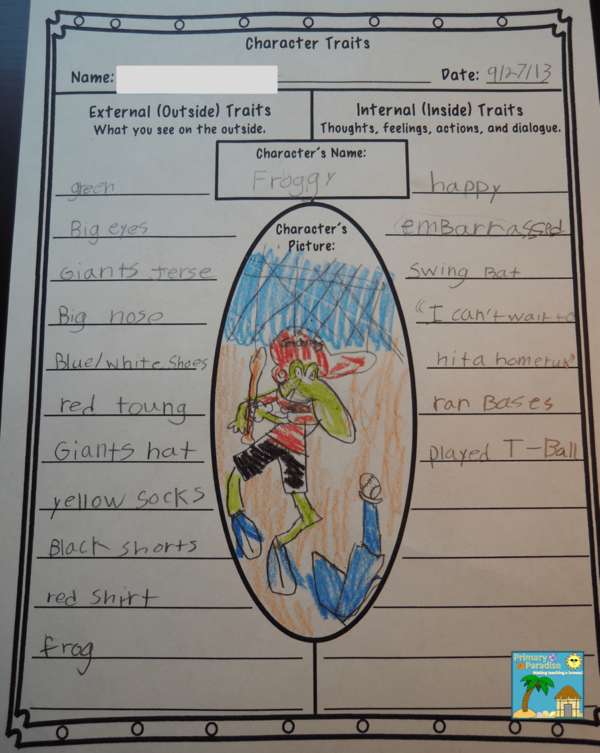 Character Traits
Name:
Date: 9/27/13
External (Outside) Traits
What you see on the outside.
Internal (Inside) Traits
Thoughts, feelings, actions, and dialogue.
Character's Name:
Froggy
green
Big eyes
Giants jerse
Big nose
Blue/white shoes
red toung
Giants hat
yellow socks
Black shorts
red shirt
frog
Character's
Picture:
happy
emBarrassed
swing Bat
"I can't wait to
hit a homerun"
ran Bases
played T-Ball
Primary
Paradise
Making teaching a breeze!